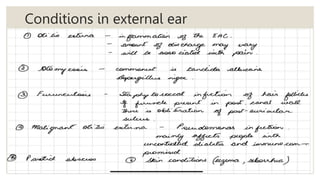 Conditions in external ear
① Otitis externa – inflammation of the EAC.
– amount of discharge may vary
– will be associated with pain
② Otomycosis – commonest is Candida albicans
Aspergillus niger
③ Furunculosis – Staphylococcal infection of hair follicle
If furuncle present in post. canal wall
there is obliteration of post-auricular
sulcus
④ Malignant otitis externa – Pseudomonas infection.
mainly affects people with
uncontrolled diabetes and immunocom–
promised
⑤ Parotid abscess ⑥ Skin conditions (eczema, seborrhea)